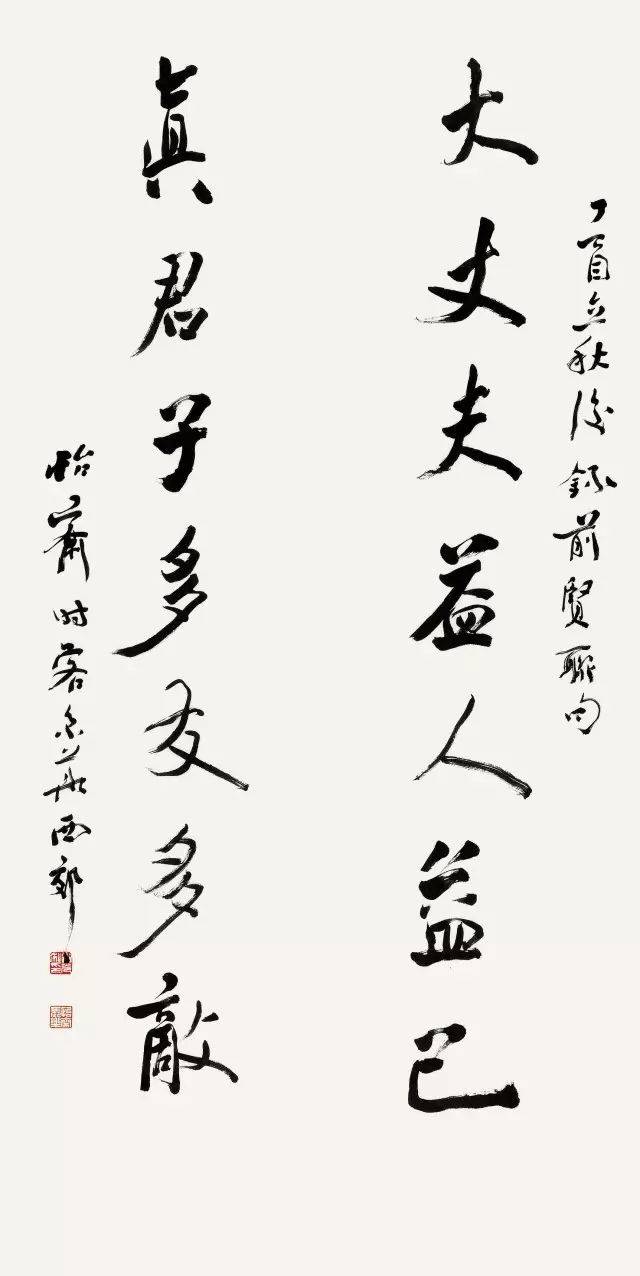 丁酉立秋後錄前賢聯句
大丈夫益人益己
眞君子多友多敵
怡齋时客京華西郊